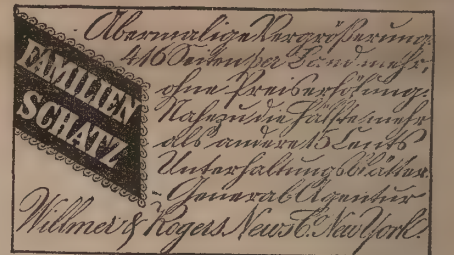 FAMILIEN
SCHATZ
Abermalige Vergrößerung.
416 Seiten per Band mehr,
ohne Preiserhöhung.
Nahezu die Hälfte mehr
als andere 15 Cents
Unterhaltungsblätter.
- General Agentur
Willmer & Rogers News C. New York.